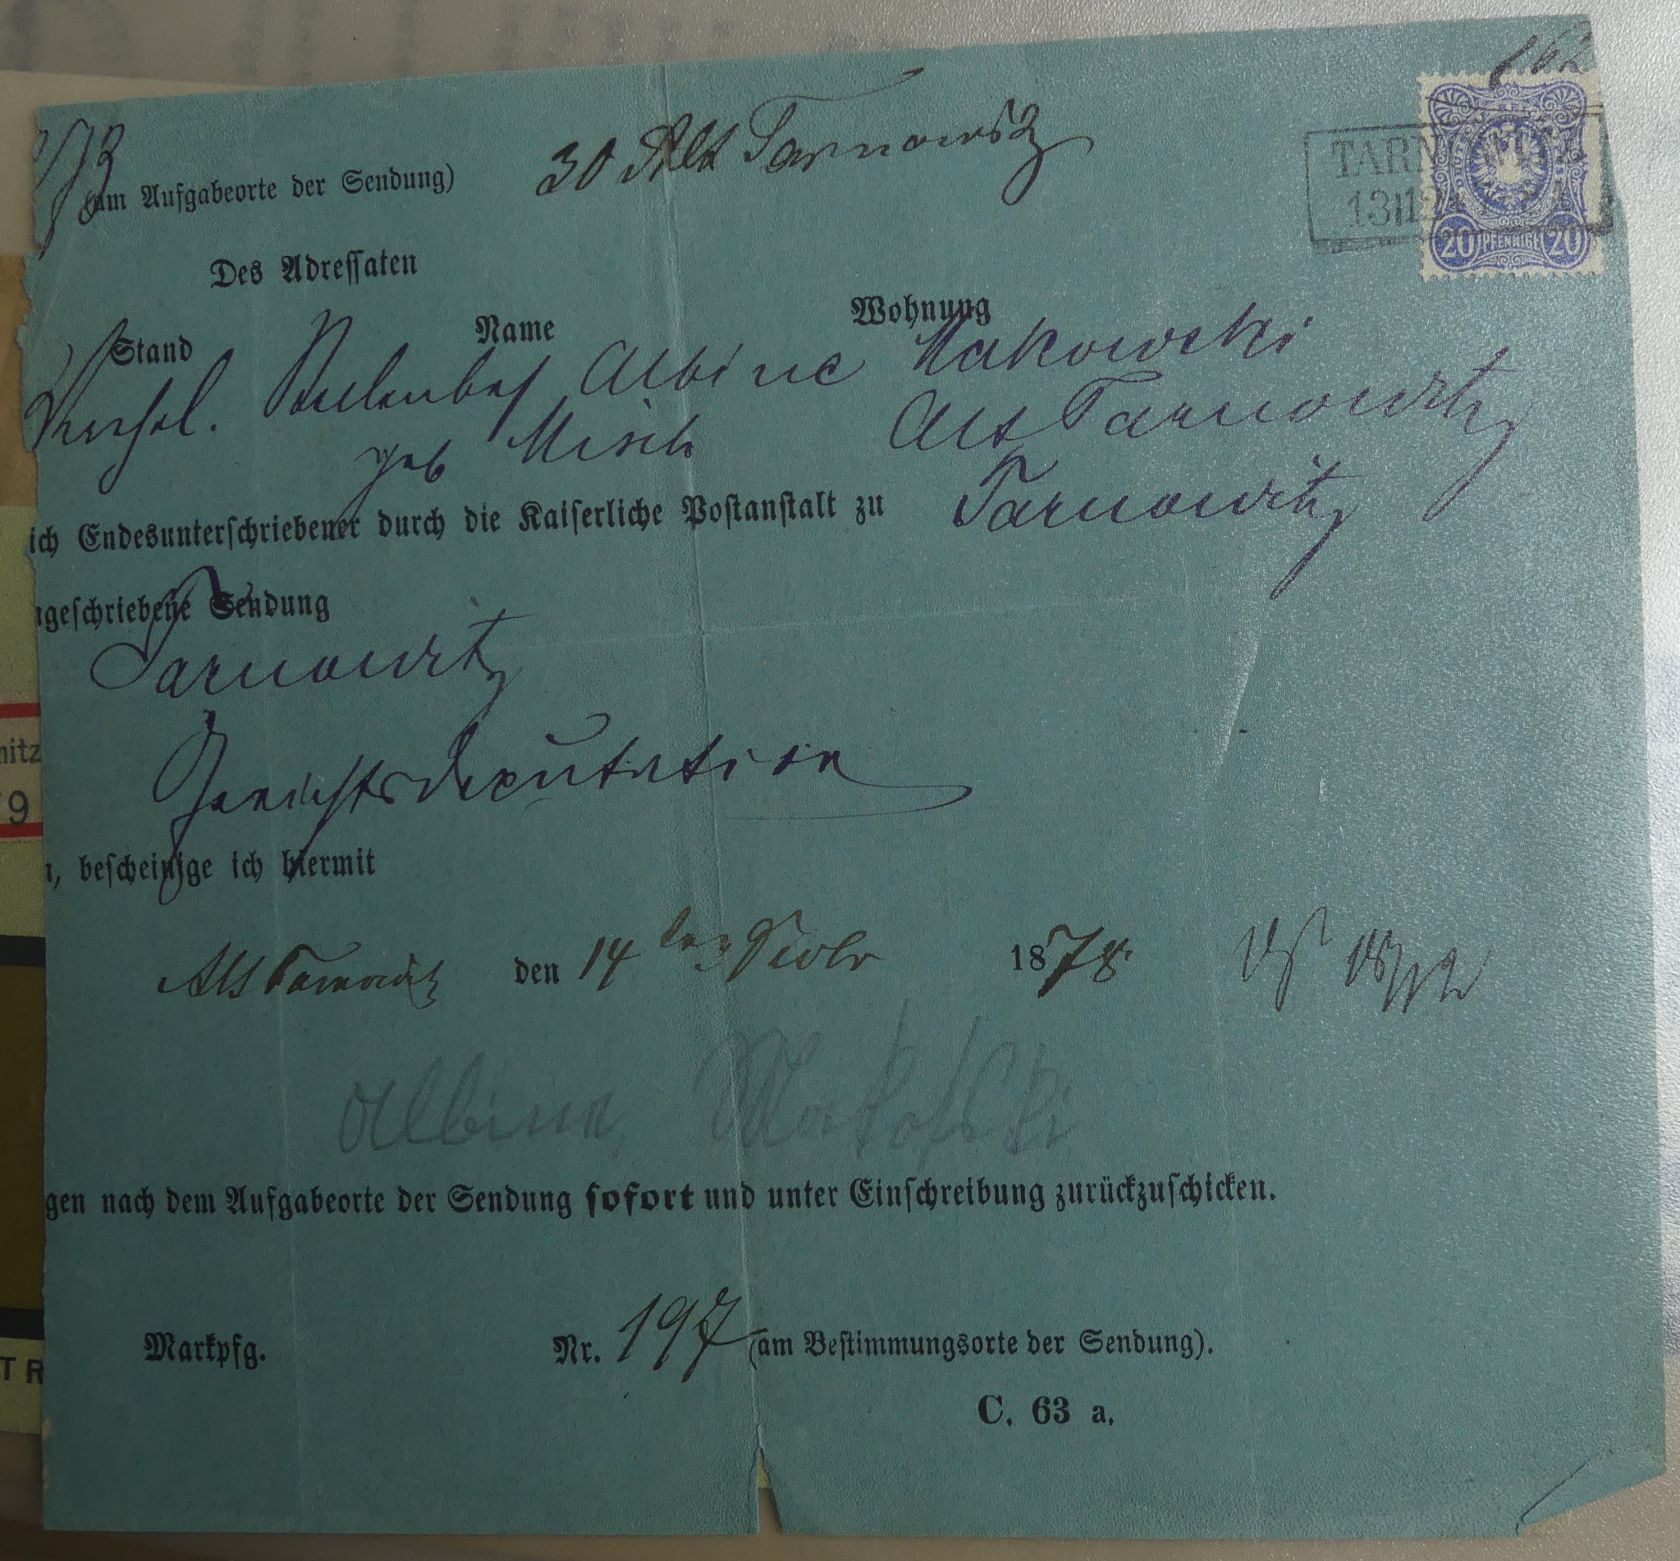 30 Alt Tarnowitz
am Aufgabeorte der Sendung)
TARNOWITZ
13|12
20 PFENNIGE 20
Des Adressaten
Stand Name Wohnung
Albine Makowski
geb Misch Alt Tarnowitz
ich Endesunterschriebener durch die Kaiserliche Postanstalt zu Tarnowitz
geschriebene Sendung
Tarnowitz
Gerichtsdeputation
, bescheinige ich hiermit
Alt Tarnowitz den 14 ten 1878.
Albine
gen nach dem Aufgabeorte der Sendung sofort und unter Einschreibung zurückzuschicken.
Markpfg. Nr. 197 (am Bestimmungsorte der Sendung).
C. 63 a.
nitz
9
TR